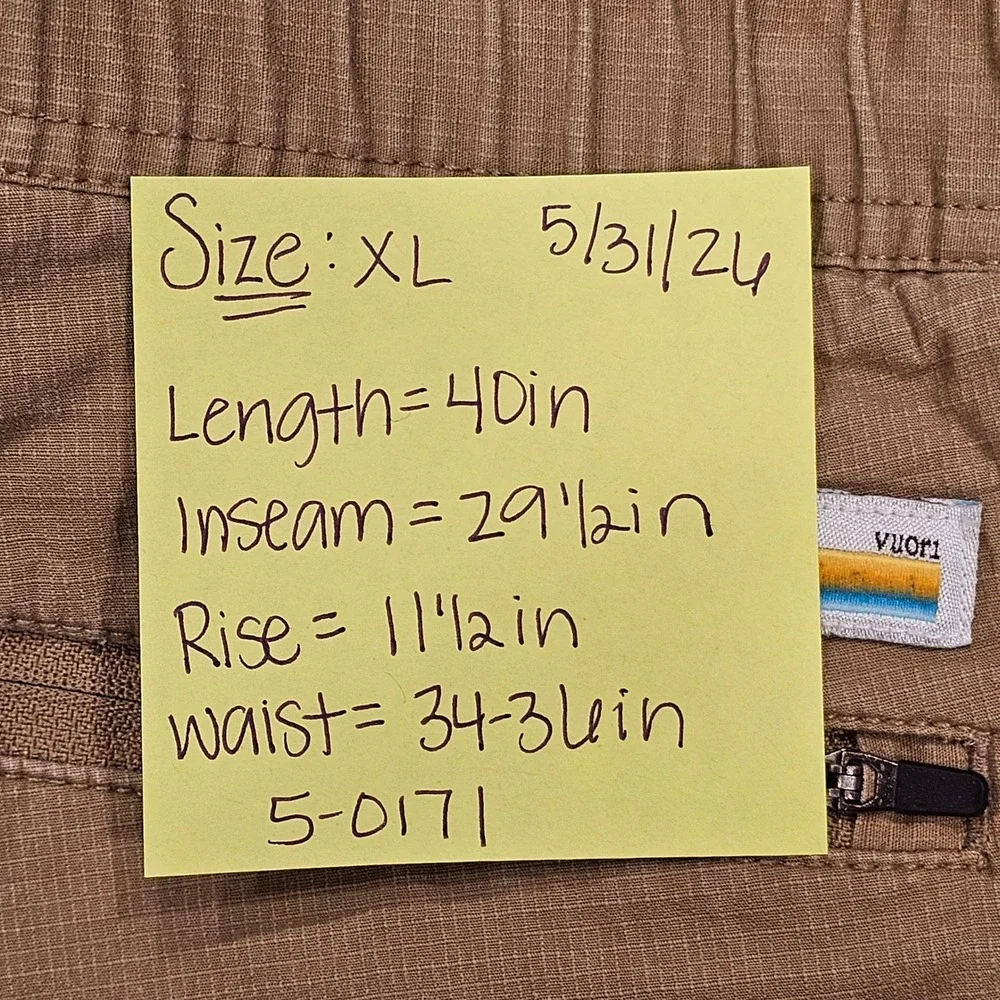 Size: XL 5/31/26
Length = 40in
Inseam = 29 1/2in
vuori
Rise = 11 1/2 in
waist = 34-36in
5-0171